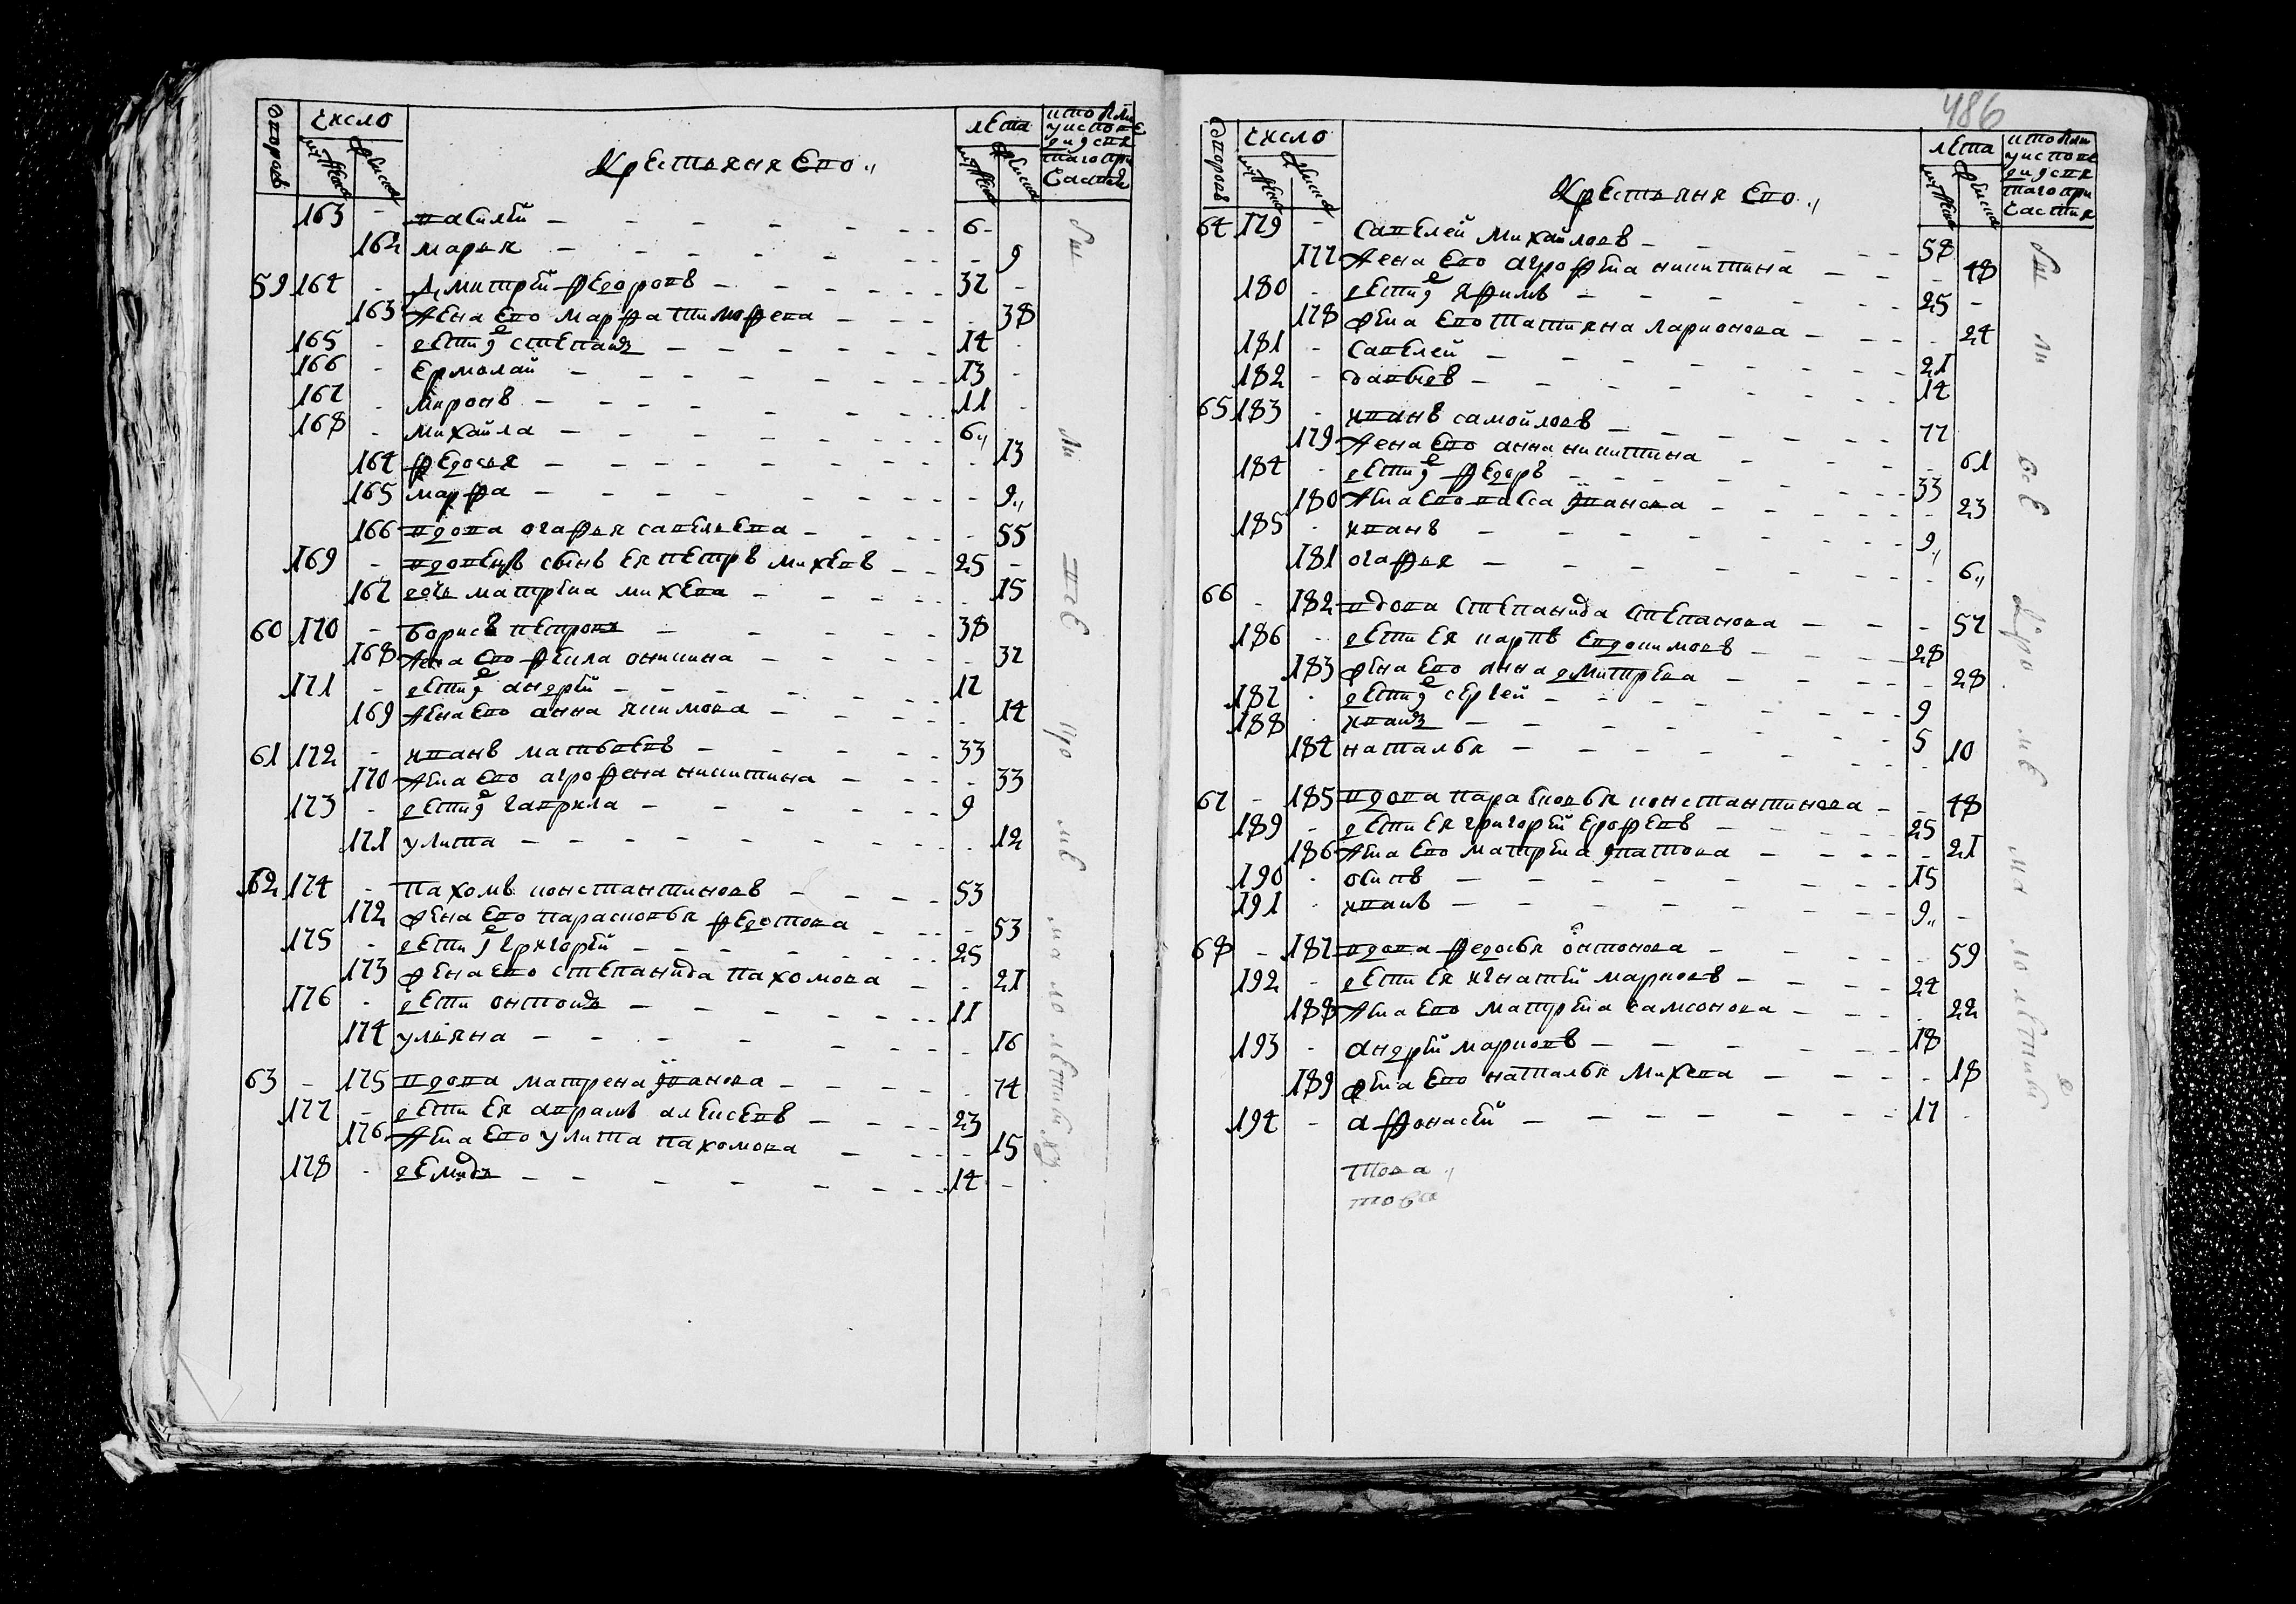 дворовъ число лета кто были у исповеди и святаго причастия
мужска женска
Крестьяня Ево
163 - василей - 6 -
162 марья - 9
59 164 - дмитрей федоровъ - 37 -
163 жена Ево марфа тимофеева - 38
165 - дети их степанъ - 14
166 - Ермолай - 13 -
167 - миронъ - 11 -
168 - михайла - 6
164 федосья - 13
165 марфа - 9
166 вдова огафья савельева - 55
169 - вдовенъ сынъ Ея петръ михеевъ - 25 -
167 дочь матрена михева - 15
60 170 - борисъ петровъ - 38
168 жена Ево фекла оникина - 37
171 - дети их андрей - 17
169 жена Ево анна якимова - 14
61 172 - иванъ матвеевъ - 33
170 жена Ево агрофена никитина - 33
173 - дети их гаврила - 9
171 улита - 12
62 174 - пахомъ константиновъ - 53
172 жена Ево парасковья федотова - 53
175 - дети их григорей - 25
173 жена Ево степанида пахомова - 21
176 - дети онтонъ - 11
174 ульяна - 16
63 - 175 вдова матрена иванова - 74
177 - дети Ея аврамъ алексеевъ - 23
176 жена Ево улита пахомова - 15
178 - демидъ - 14 -
486
дворовъ число лета кто были у исповеди и святаго причастия
мужска женска
Крестьяня Ево
64 179 - савелей михайловъ - 58
177 жена Ево агрофена никитина - 48
180 - дети их яфимъ - 25 -
178 жена Ево татияна ларионова - 24
181 - савелей - 21
182 - давыдъ - 14
65 183 - иванъ самойловъ - 77
179 жена Ево анна никитина - 61
184 - дети их федоръ - 33
180 жена Ево васса иванова - 23
185 - иванъ - 9
181 огафья - 6
66 - 182 вдова степанида степанова - 57
186 - дети Ея карпъ Евдокимовъ - 28
183 жена Ево анна дмитрева - 28
187 - дети их сергей - 9
188 иванъ - 5
184 наталья - 10
67 - 185 вдова парасковья константинова - 48
189 - дети Ея григорей Ерофеевъ - 25
186 жена Ево матрена - 21
190 - осипъ - 15
191 - иванъ - 9 -
68 - 187 вдова федосья онтонова - 59
192 - дети Ея игнатей марковъ - 24
188 жена Ево матрена самсонова - 22
193 - андрей марковъ - 18
189 жена Ево наталья михева - 18
194 - афонасей - 17
това
това